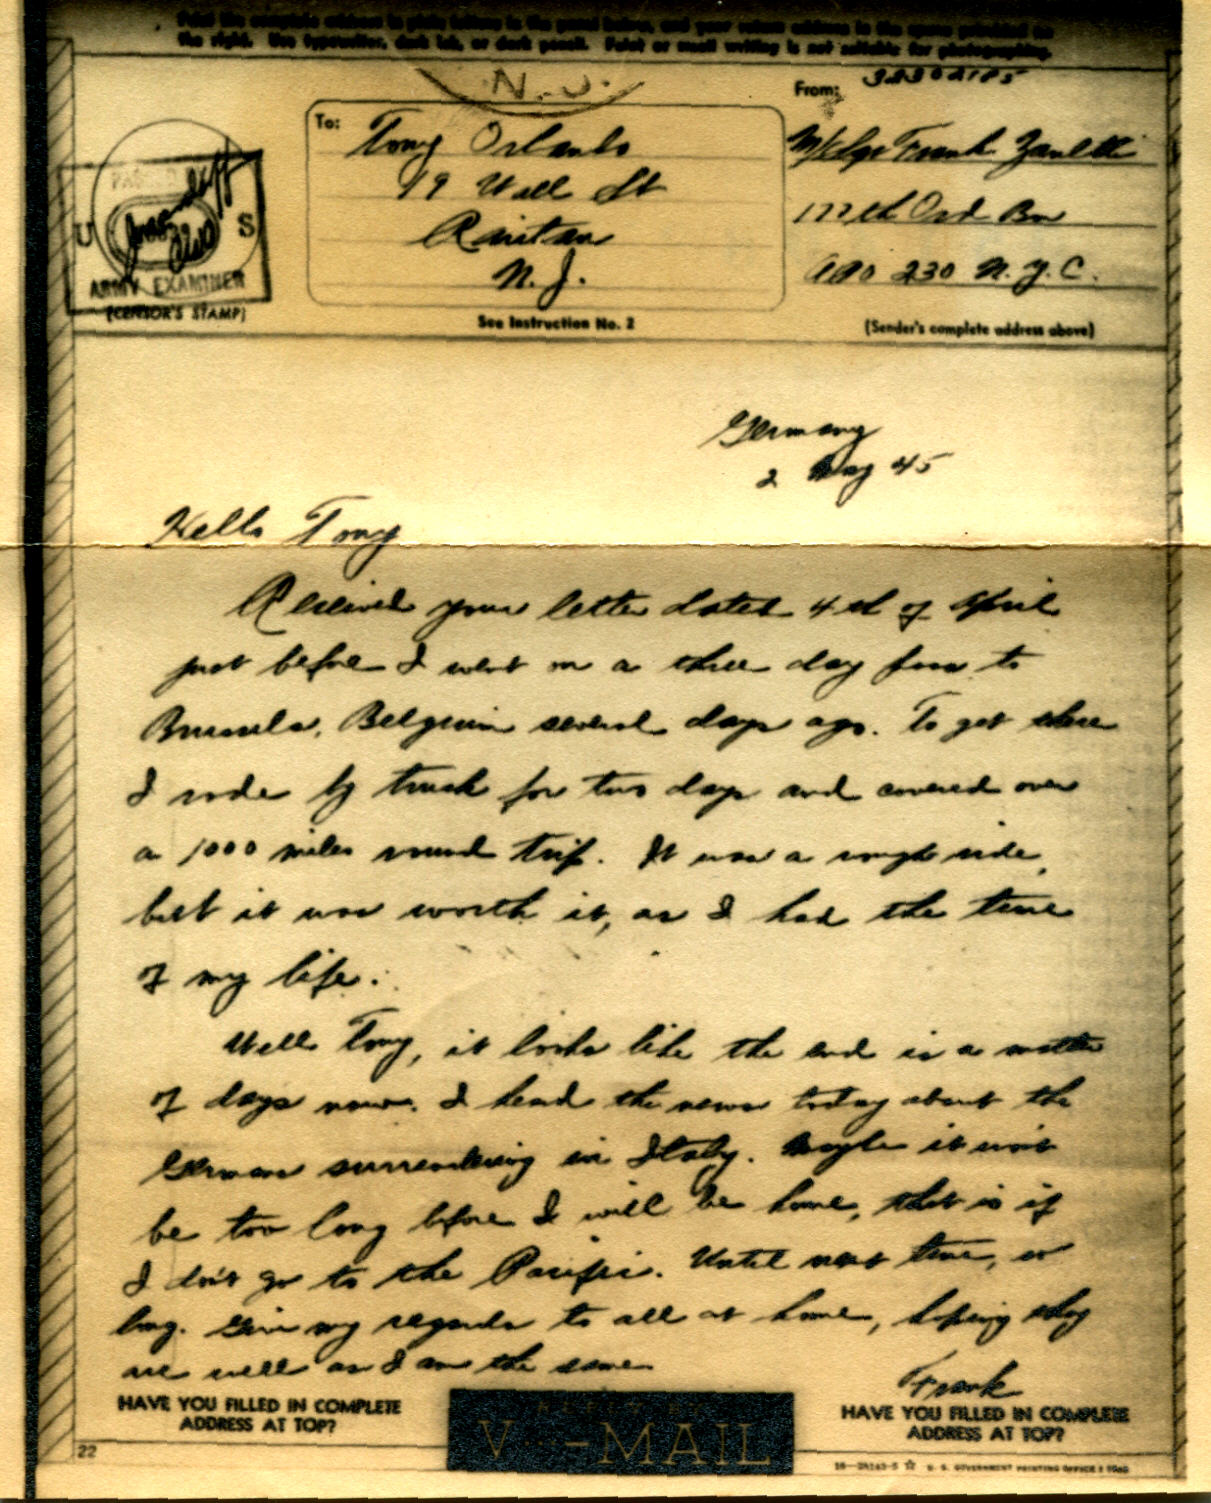 Print the complete address in plain letters in the panel below, and your return address in the space provided on
the right. Use typewriter, dark ink, or dark pencil. Faint or small writing is not suitable for photographing.
N.J.
From:
To: Tony Orlando
19 Wall St
Raritan
N.J.
See Instruction No. 2
M/Sgt Frank Zanetti
177th Ord Bn
APO 230 N.Y.C.
(Sender's complete address above)
U S
ARMY EXAMINER
(CENSOR'S STAMP)
Germany
2 May 45
Hello Tony
Received your letter dated 4th of April
just before I went on a three day pass to
Brussels, Belgium several days ago. To get there
I rode by truck for two days and covered over
a 1000 miles round trip. It was a rough ride,
but it was worth it, as I had the time
of my life.
Well Tony, it looks like the end is a matter
of days now. I heard the news today about the
German surrendering in Italy. Maybe it won't
be too long before I will be home, that is if
I don't go to the Pacific. Until next time, so
long. Give my regards to all at home, hoping they
are well as I am the same
Frank
HAVE YOU FILLED IN COMPLETE
ADDRESS AT TOP?
V - MAIL
HAVE YOU FILLED IN COMPLETE
ADDRESS AT TOP?
22
16—28143-5 ☆ U. S. GOVERNMENT PRINTING OFFICE :